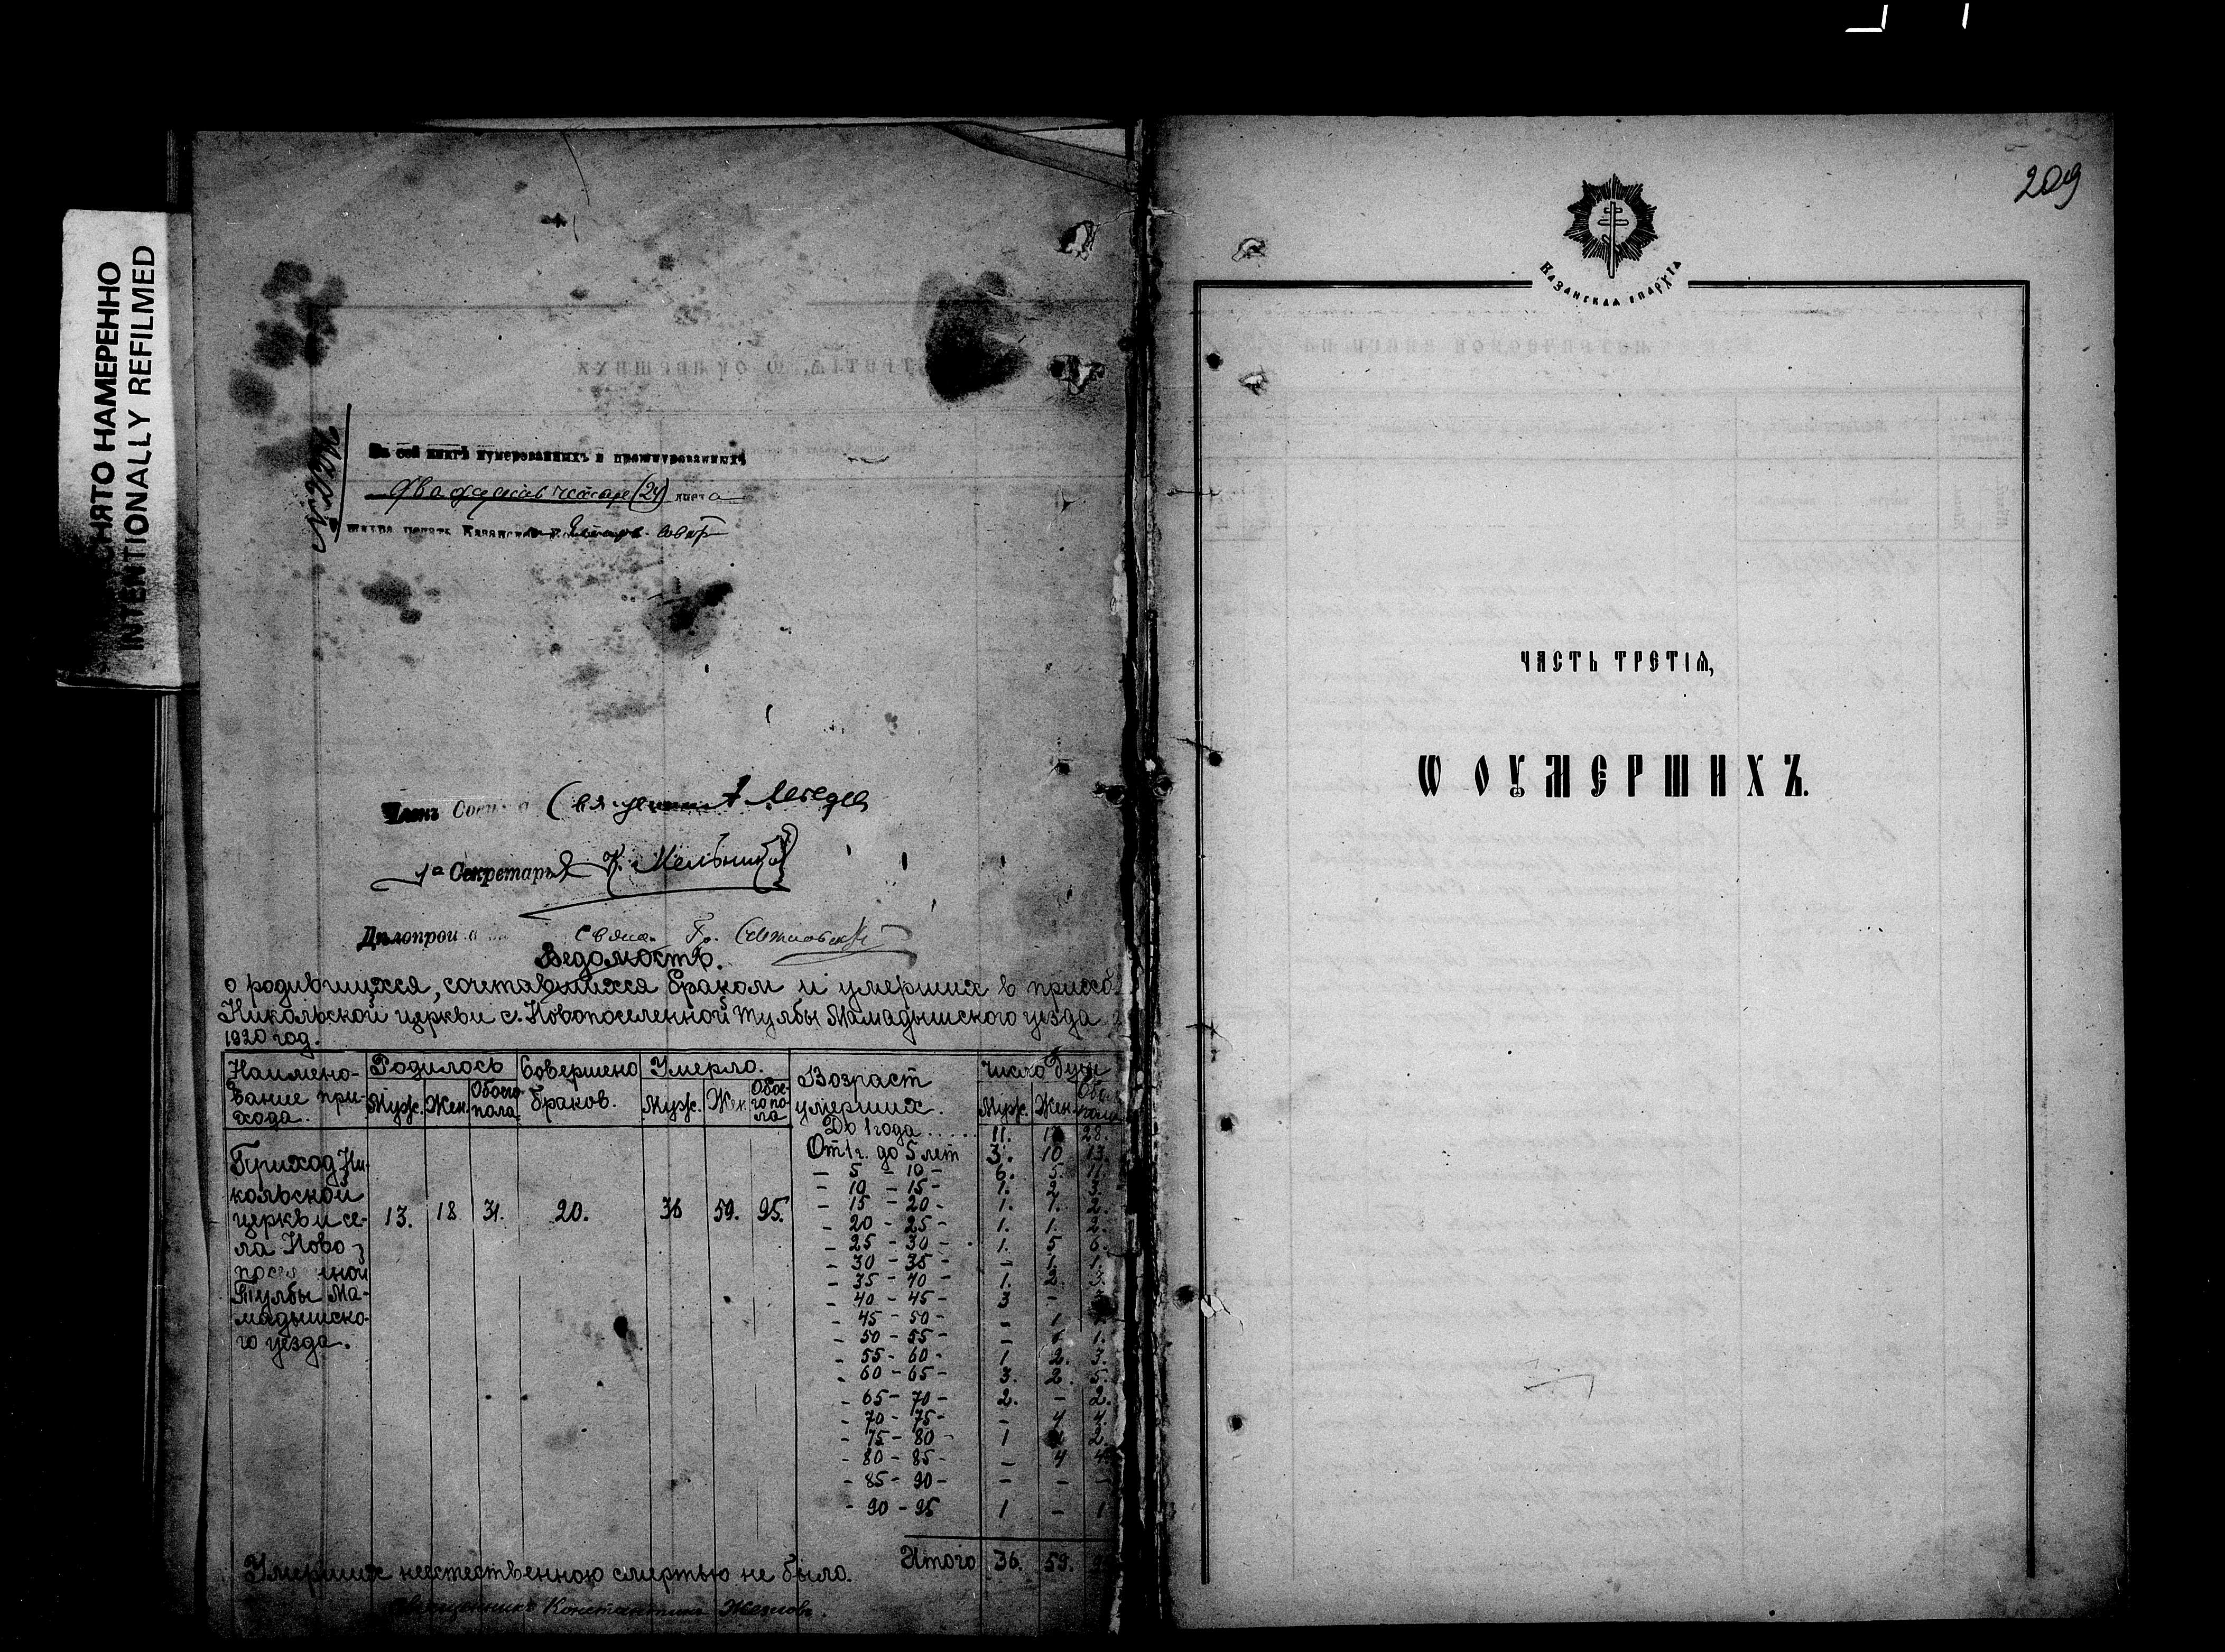 СНЯТО НАМЕРЕННО
INTENTIONALLY REFILMED
Въ сей книгѣ нумерованныхъ и прошнурованныхъ
двадцать четыре (24) листа
Членъ Священникъ А. Лебедев
1й Секретарь К. Мельников
Дѣлопроизв
Ведомость.
о родившихся, сочетавшихся браком и умерших в приход
Никольской церкви с. Новопоселенной Тулбы Мамадышского уезда
1920 год.
Наимено-вание при-хода. Родилось Совершено браков. Умерло. Возраст умерших. Число душ
Муж. Жен. Обоего пола Муж. Жен. Обое-го по-ла Муж. Жен. Обоего пола
До 1 года..... 11. 17 28.
От 1 г. до 5 лет 3. 10 13.
Приход Ни-
– 5 – 10 – 6. 5. 11.
кольской
– 10 – 15 – 1. 2. 3.
церкви се- 13. 18 31. 20. 36 59. 95.
– 15 – 20 – 1. 1. 2.
– 20 – 25 – 1. 1. 2.
ла Ново-
– 25 – 30 – 1. 5 6.
поселенной
– 30 – 35 – – 1. 1.
Тулбы Ма-
– 35 – 40 – 1. 2. 3.
– 40 – 45 – 3 –
мадышско-
– 45 – 50 – – 1
го уезда.
– 50 – 55 – – 1 1.
– 55 – 60 – 1 2. 3.
– 60 – 65 – 3. 2. 5.
– 65 – 70 – 2. – 2.
– 70 – 75 – – 4 4.
– 75 – 80 – 1 2.
– 80 – 85 – – 4 4
– 85 – 90 – – –
– 90 – 95 1 – 1
Итого 36. 59.
Умерших неестественною смертью не было.
Священникъ Константинъ Жезлов.
209
Казанская епархія
ЧАСТЬ ТРЕТІѦ,
Ѡ ОУМЕРШИХЪ.